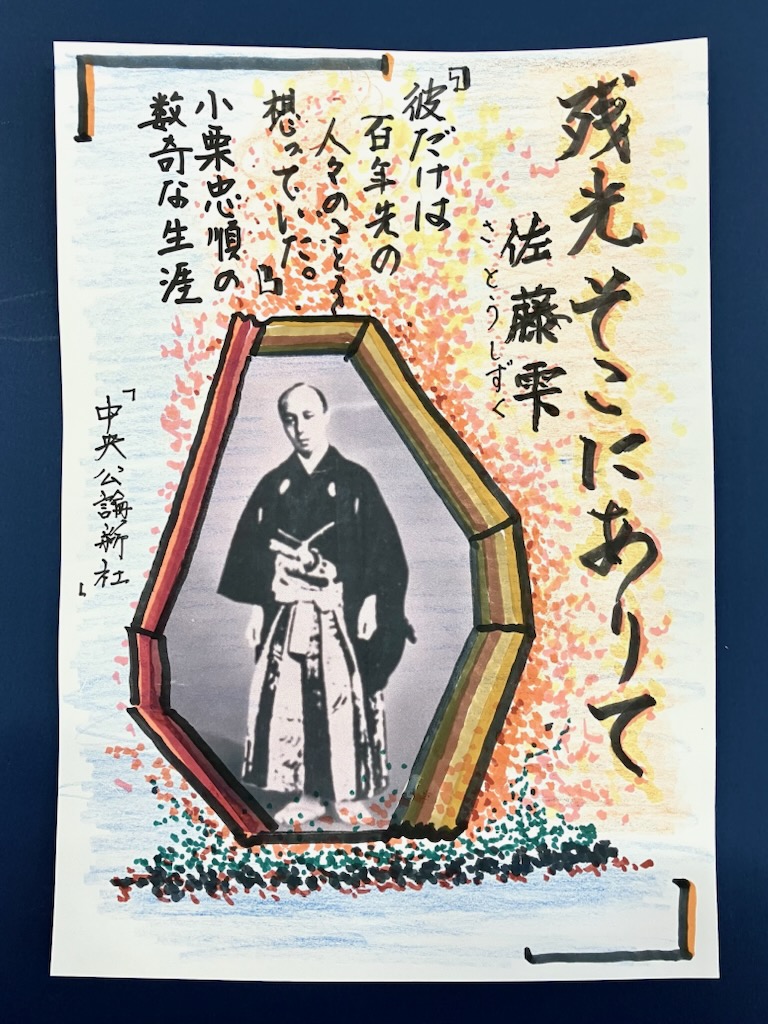 残光そこにありて
佐藤雫
さとうしずく
『彼だけは
百年先の
人々のことを
想っていた。』
小栗忠順の
数奇な生涯
「中央公論新社」